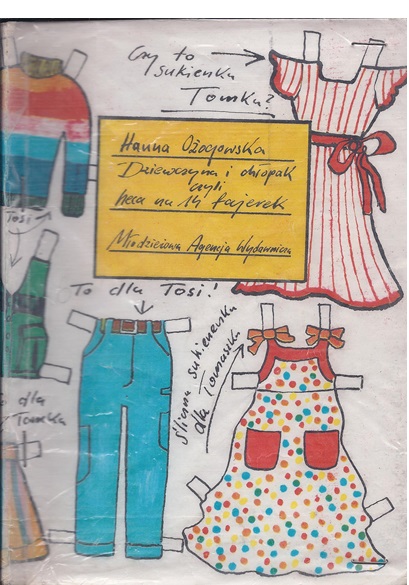 Czy to
sukienka
Tomka?
Hanna Ożogowska
Dziewczyna i chłopak
czyli
heca na 14 fajerek
Młodzieżowa Agencja Wydawnicza
Tosi
To dla Tosi!
śliczna sukienecka
dla Tomaszka
dla
Tomka